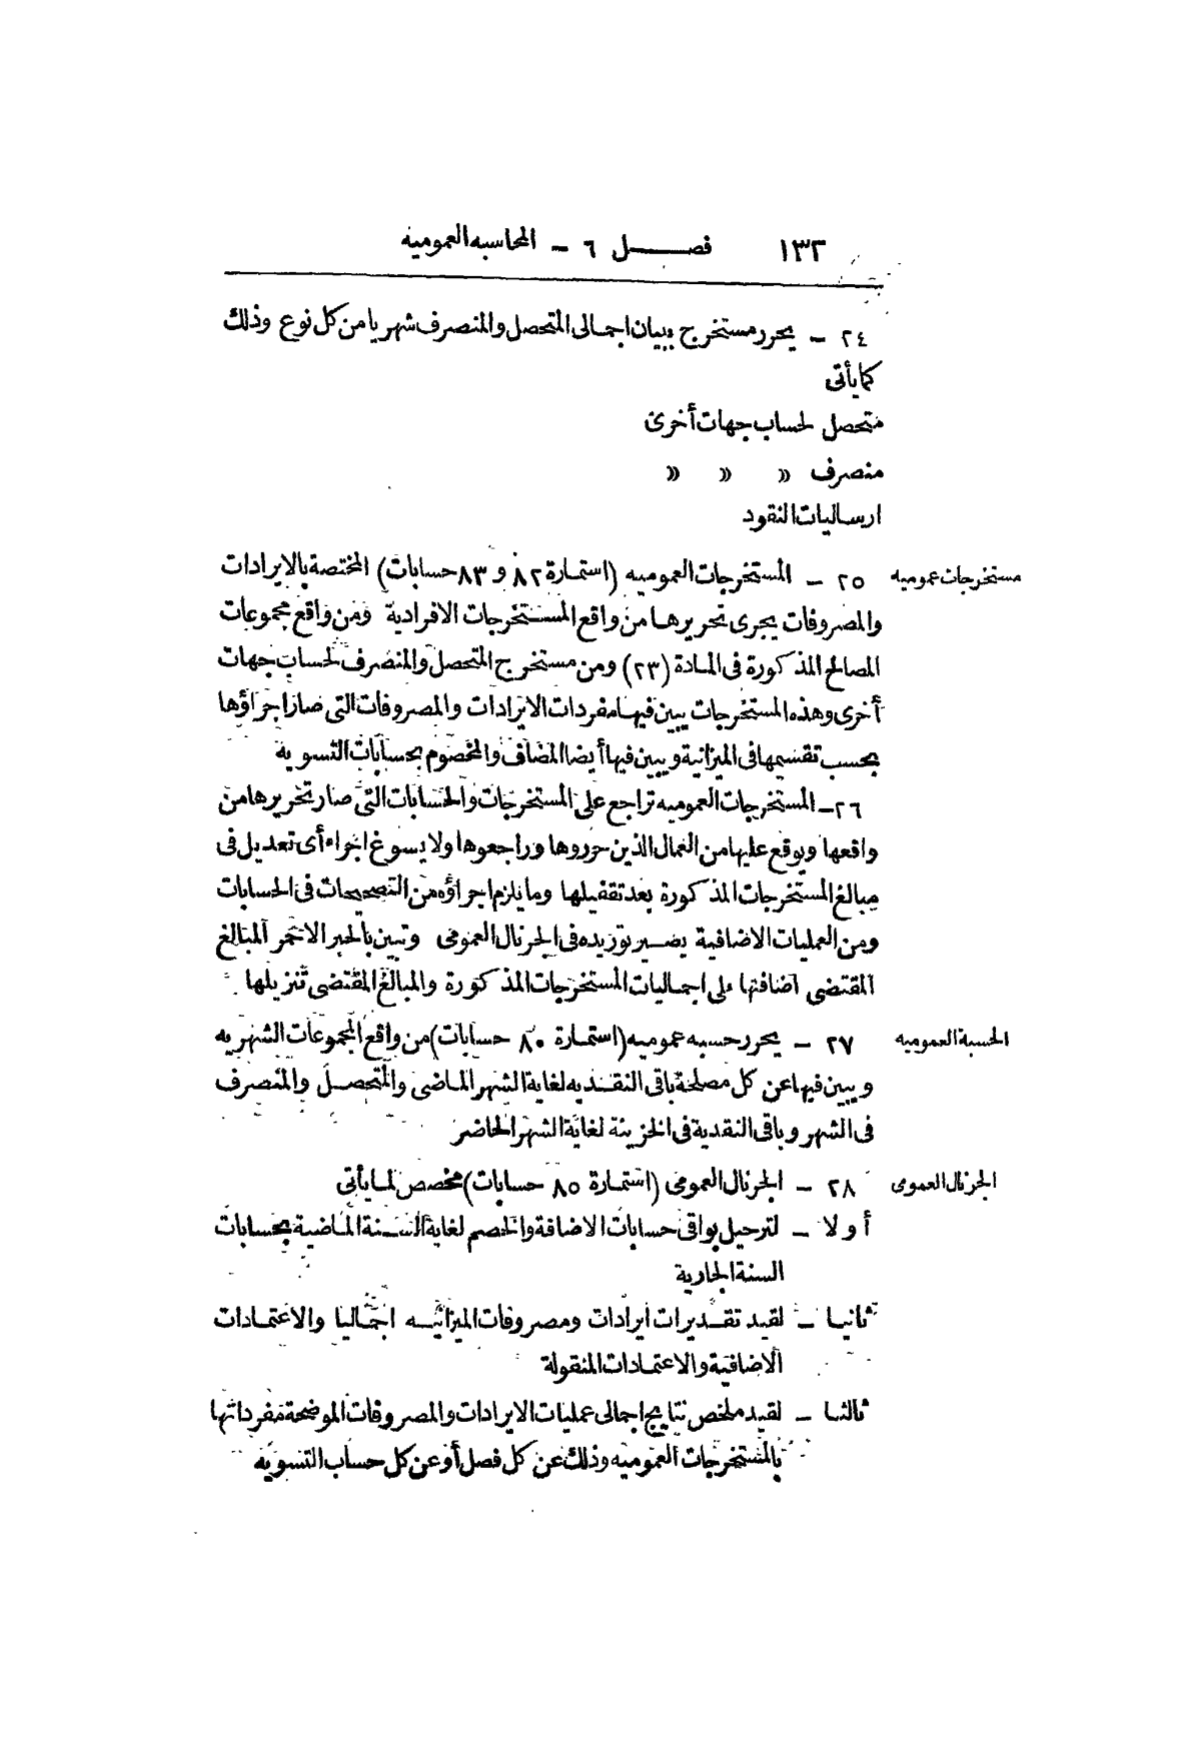 ١٣٢ فصل ٦ - المحاسبه العموميه
٢٤ - يحرر مستخرج ببيان اجمالى المتحصل والمنصرف شهريا من كل نوع وذلك
كما يأتى
متحصل لحساب جهات أخرى
منصرف » » »
ارساليات النقود
مستخرجات عموميه
٢٥ - المستخرجات العموميه (استمارة ٨٢ و ٨٣ حسابات) المختصة بالايرادات
والمصروفات يجرى تحريرها من واقع المستخرجات الافرادية ومن واقع مجموعات
المصالح المذكورة فى المادة (٢٣) ومن مستخرج المتحصل والمنصرف لحساب جهات
أخرى وهذه المستخرجات يبين فيها مفردات الايرادات والمصروفات التى صار اجراؤها
بحسب تقسيمها فى الميزانية ويبين فيها أيضا المضاف والمخصوم بحسابات التسوية
٢٦ - المستخرجات العموميه تراجع على المستخرجات والحسابات التى صار تحريرها من
واقعها ويوقع عليها من العمال الذين حرروها وراجعوها ولا يسوغ اجراء أى تعديل فى
مبالغ المستخرجات المذكورة بعد تقفيلها وما يلزم اجراؤه من التصحيحات فى الحسابات
ومن العمليات الاضافية يصير توريده فى الجرنال العمومى وتبين بالحبر الاحمر المبالغ
المقتضى اضافتها على اجماليات المستخرجات المذكورة والمبالغ المقتضى تنزيلها
الحسبة العموميه
٢٧ - يحرر حسبه عموميه (استمارة ٨٠ حسابات) من واقع المجموعات الشهريه
ويبين فيها عن كل مصلحة باقى النقديه لغاية الشهر الماضى والمتحصل والمنصرف
فى الشهر وباقى النقدية فى الخزينة لغاية الشهر الحاضر
الجرنال العمومى
٢٨ - الجرنال العمومى (استمارة ٨٥ حسابات) مخصص لما يأتى
أولا - لترحيل بواقى حسابات الاضافة والخصم لغاية السنة الماضية بحسابات
السنة الجارية
ثانيا - لقيد تقديرات ايرادات ومصروفات الميزانيه اجماليا والاعتمادات
الاضافية والاعتمادات المنقولة
ثالثا - لقيد ملخص نتايج اجمالى عمليات الايرادات والمصروفات الموضحة مفرداتها
بالمستخرجات العموميه وذلك عن كل فصل أو عن كل حساب التسويه